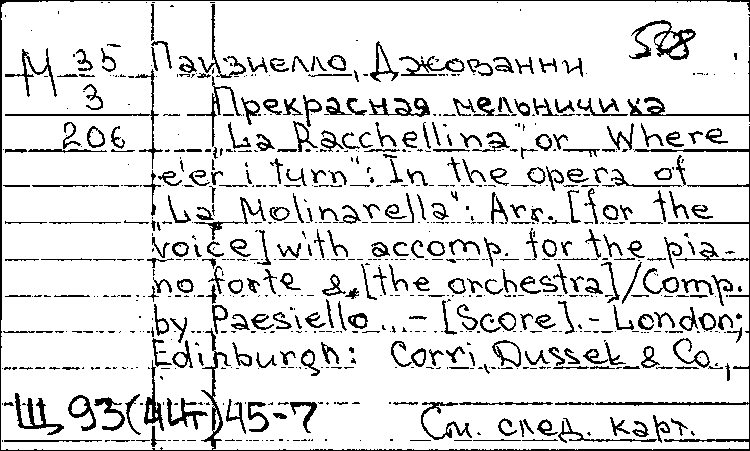 М 35 Паизиелло, Джованни 508
3 Прекрасная мельничиха
206 "La Racchellina", or "Where
e'er i turn": In the opera of
"La Molinarella": Arr. [for the
voice] with accomp. for the pia-
no forte &. [the orchestra]/Comp.
by Paesiello... - [Score]. - London;
Edinburgh: Corri, Dussek & Co.,
Щ 93(4Ит)45-7 См. след. карт.